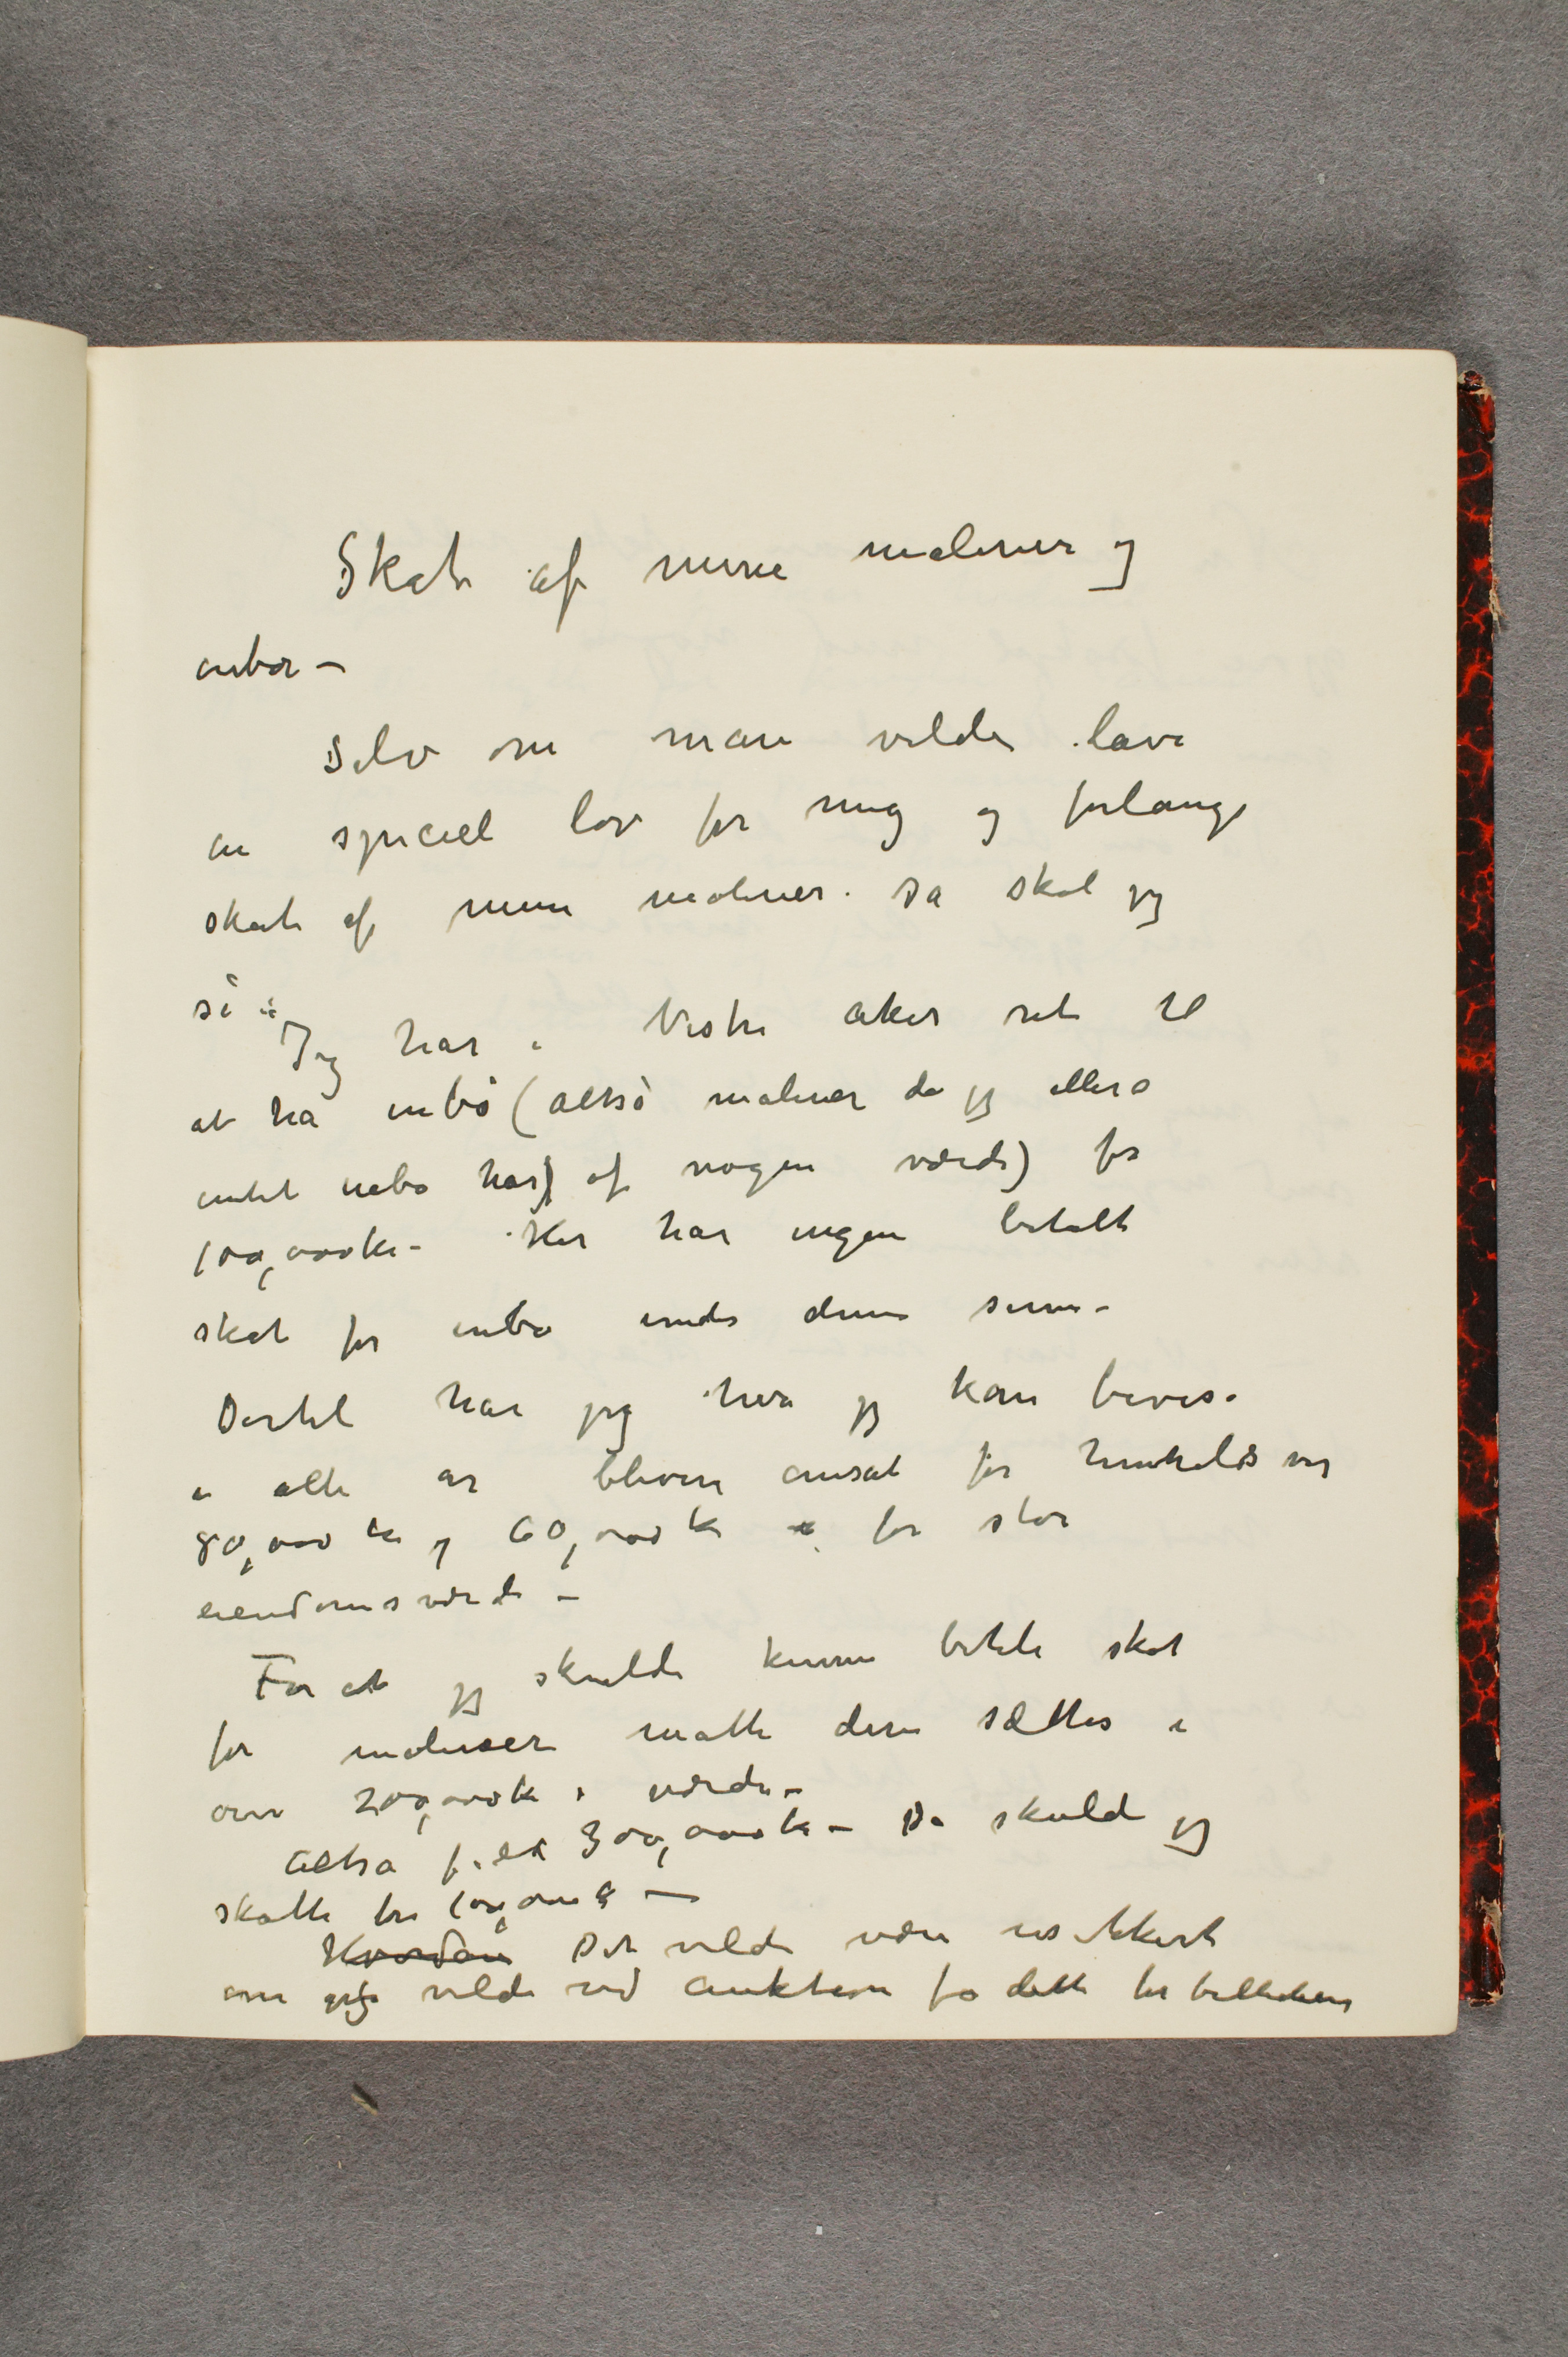 Skat af mine malerier og
inbo –
Selv om man vilde lave
en speciel lov for mig og forlange
skat af mine malerier. så skal jeg
si :
Jeg har i Vestre Aker ret til
at ha inbo (altså malerier da jeg ellers
intet inbo har) af nogen værdi) for
100,000 kr – Her har ingen betalt
skat for inbo under denne sum –
Dertil har jeg hva jeg kan bevise
i alle år bleven ansat for henholdsvis
80,000 kr og 60,000 kr for stor
eiendomsværdi –
For at jeg skulde kunne betale skat
for malerier måtte disse sættes i
over 200,000 kr i værdi –
Altså f. ex 300,000 kr – Da skulde jeg
skatte for 100,000 –
Hvordan Det vilde være usikkert
om jeg vilde ved auktion få dette for billederne